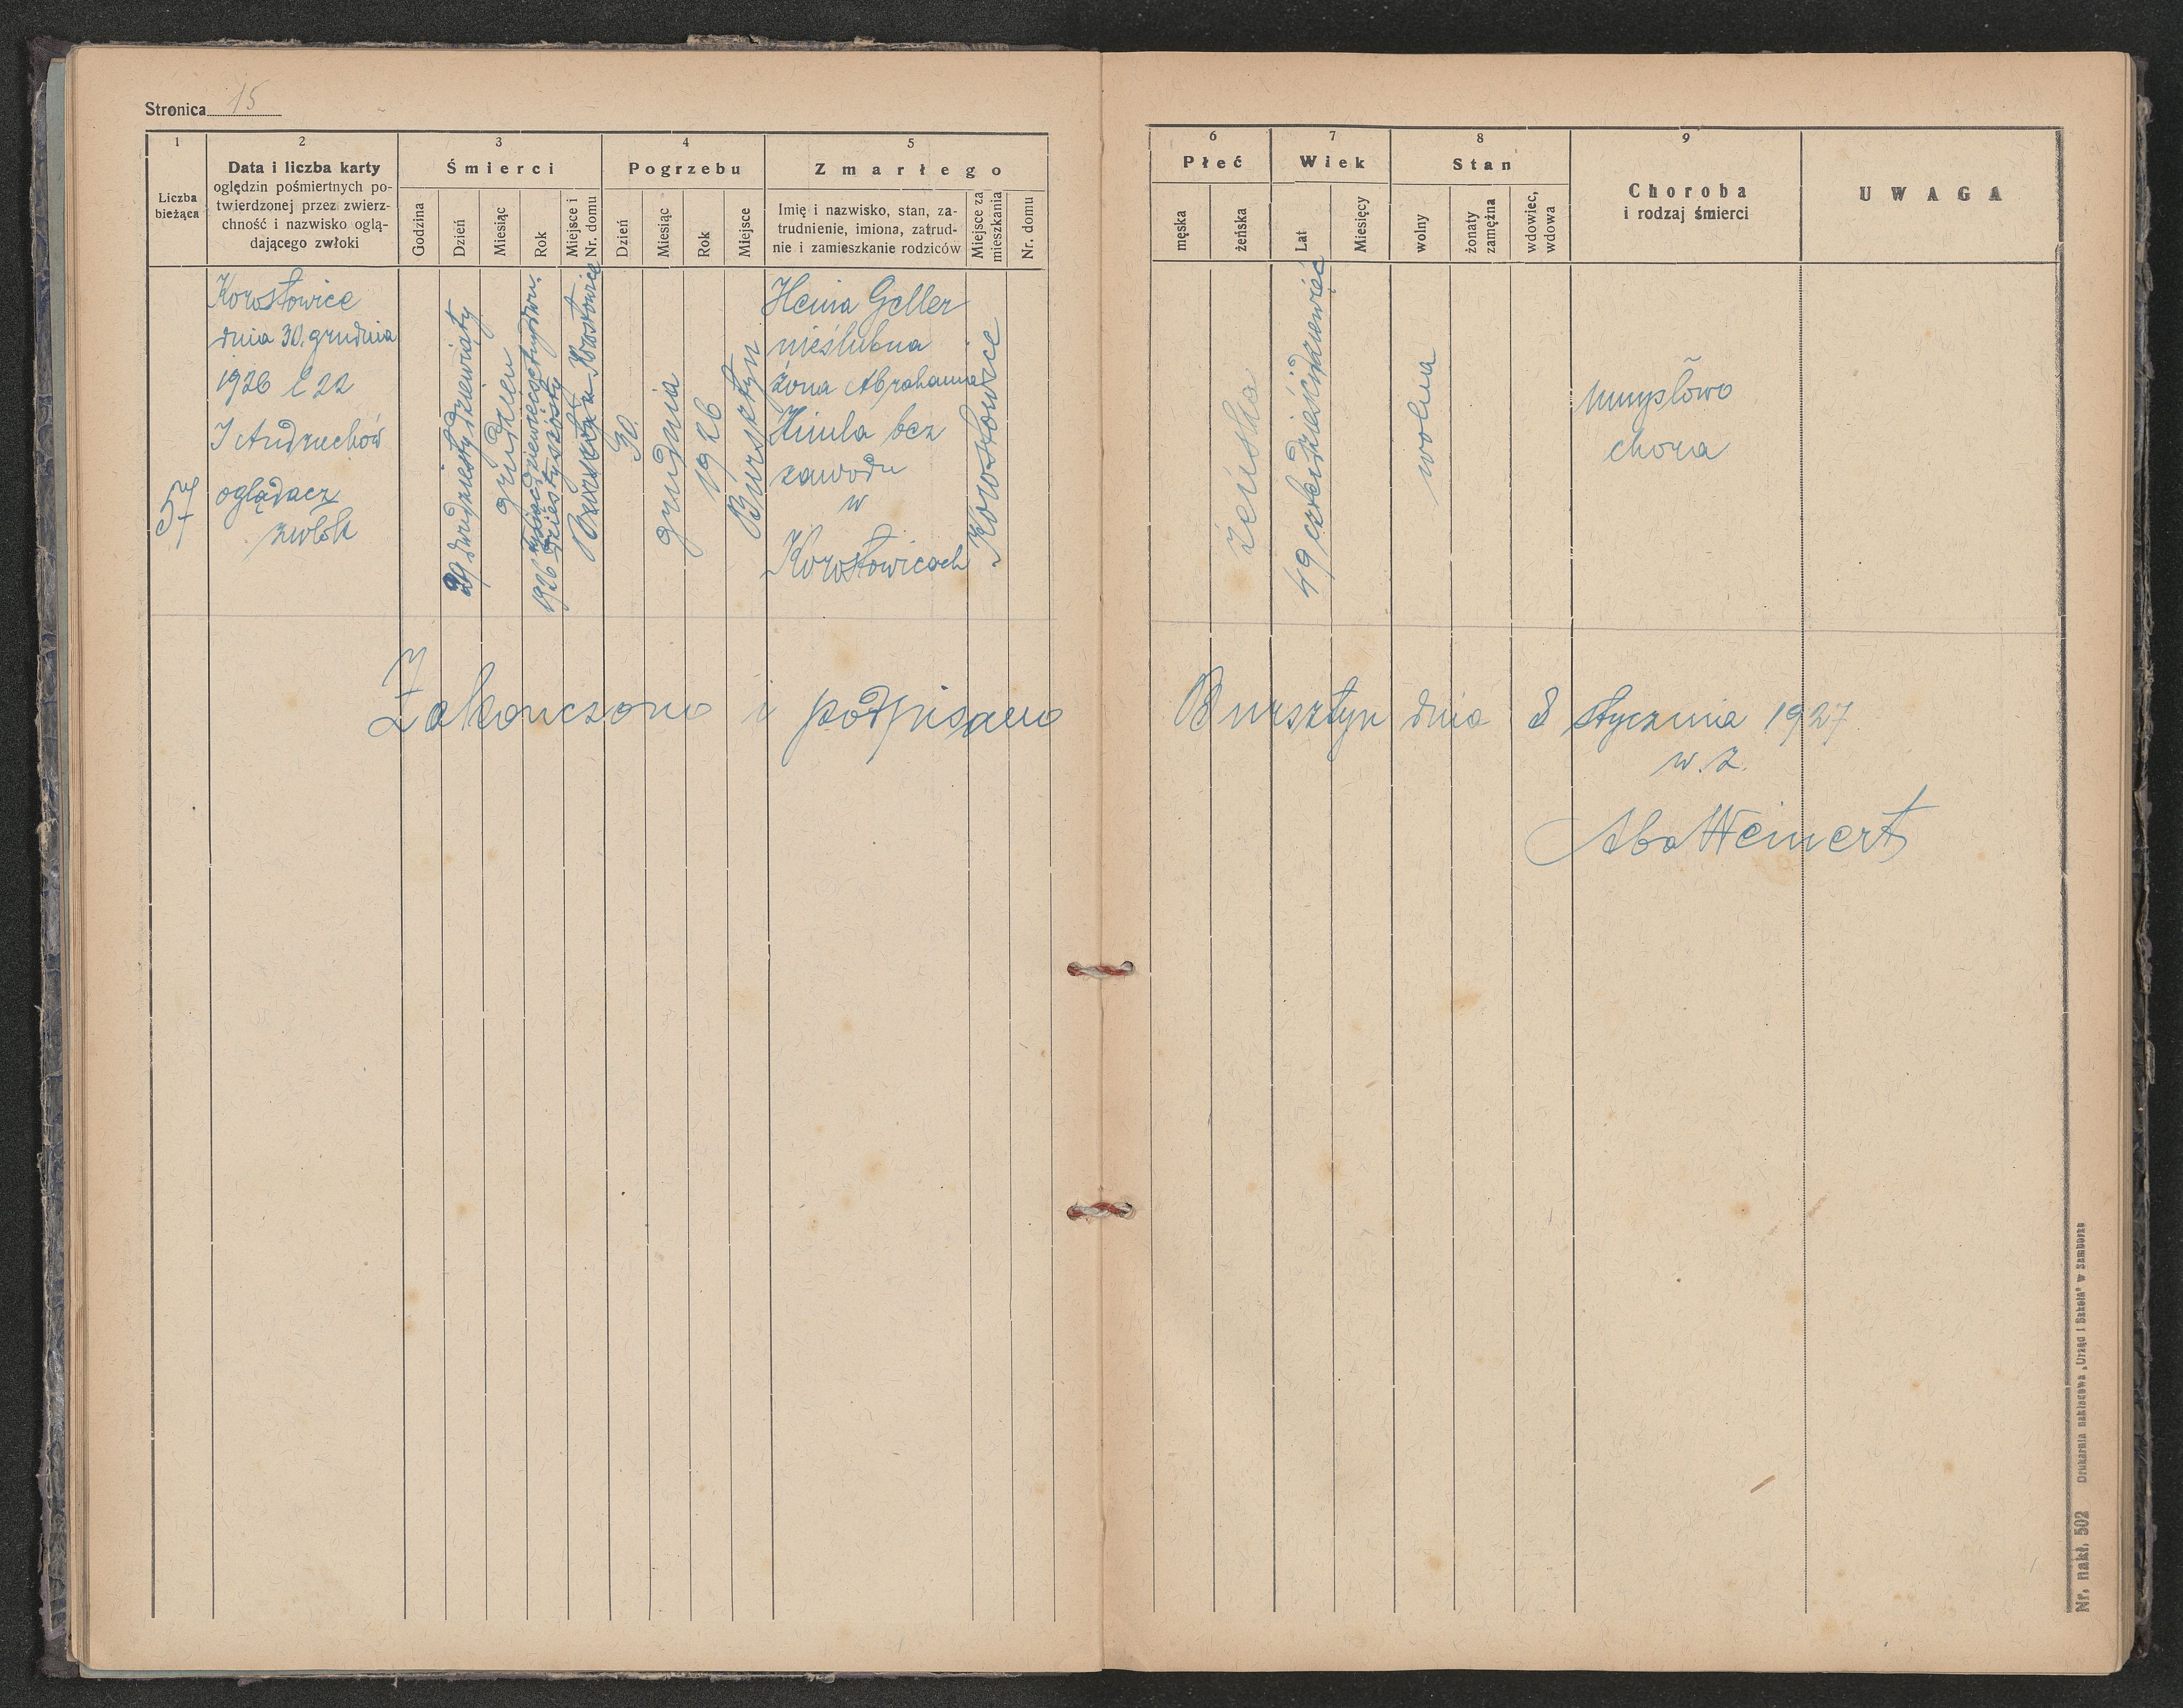 Stronica 15
1
Liczba
bieżąca
2
Data i liczba karty
oględzin pośmiertnych po-
twierdzonej przez zwierz-
chność i nazwisko oglą-
dającego zwłoki
3
Śmierci
Godzina
Dzień
Miesiąc
Rok
Miejsce i
Nr. domu
4
Pogrzebu
Dzień
Miesiąc
Rok
Miejsce
5
Zmarłego
Imię i nazwisko, stan, za-
trudnienie, imiona, zatrud-
nie i zamieszkanie rodziców
Miejsce za
mieszkania
Nr. domu
6
Płeć
męska
żeńska
7
Wiek
Lat
Miesięcy
8
Stan
wolny
żonaty
zamężna
wdowiec,
wdowa
9
Choroba
i rodzaj śmierci
UWAGA
57
Korostowice
dnia 30. grudnia
1926 l 22
J Andruchów
oglądacz
zwłok
29 dwudziesty dziewiąty
grudzień
1926 tysiąc dziewięcset dwu-
dziesty szósty
Korostowice
30.
grudnia
1926
Bursztyn
Henia Geller
nieślubna
żona Abrahama
Kimla bez
zawodu
w
Korostowicach
Korostowice
żeńska
49 czterdzieści dziewięć
wolna
umysłowo
chora
Zakończono i podpisano
Bursztyn dnia 8 stycznia 1927
w. z.
Aba Weinert
Nr. nakł. 502 Drukarnia nakładowa „Urząd i Szkoła" w Samborze